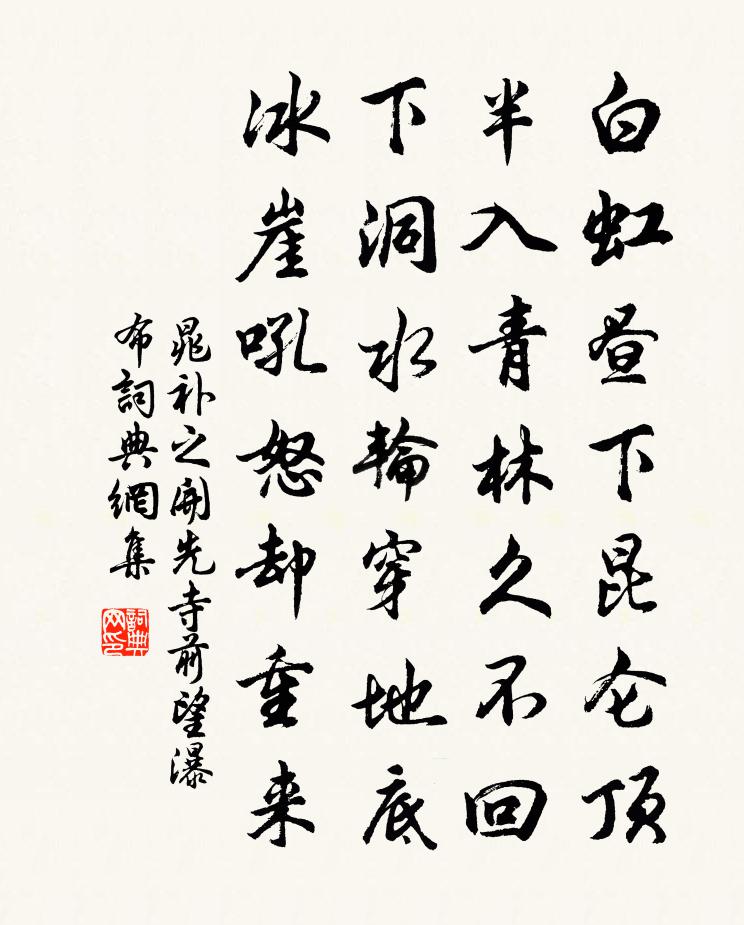 白虹昼下昆仑顶
半入青林久不回
下洞水輪穿地底
冰崖吼怒却重来
晁补之開先寺前望瀑
布詞典網集
詞典
网印